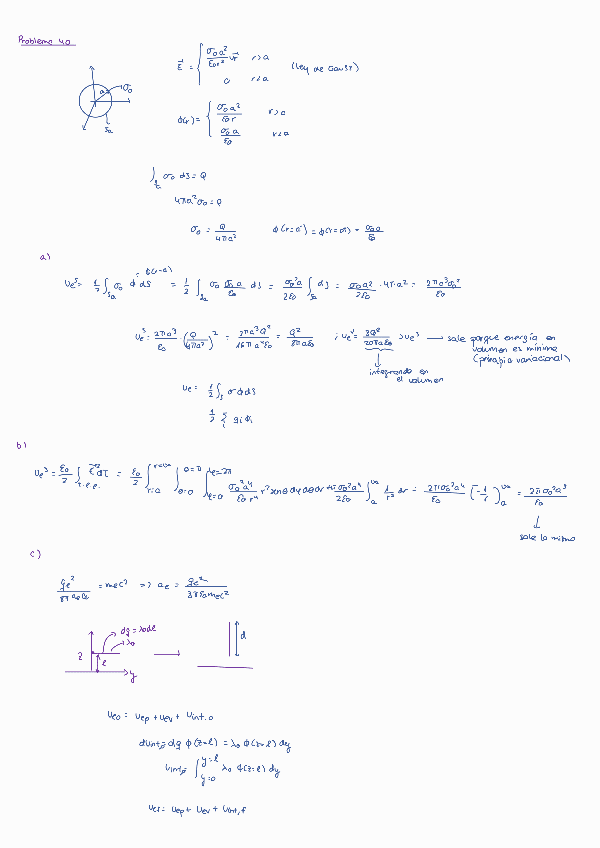 Problema 40
E⃗ = { σ₀a²/ε₀r² u⃗r   r>a
0   r<a   (Ley de Gauss)
a   σ₀
Sa
ϕ(r) = { σ₀a²/ε₀r   r>a
σ₀a/ε₀   r<a
∫Sa σ₀ dS = Q
4πa²σ₀ = Q
σ₀ = Q/4πa²   ϕ(r=a⁺) = ϕ(r=a⁻) = σ₀a/ε₀
a)
ϕ(r=a)
Ueˢ = 1/2 ∫Sa σ₀ ϕ dS = 1/2 ∫Sa σ₀ σ₀a/ε₀ dS = σ₀²a/2ε₀ ∫Sa dS = σ₀²a/2ε₀ · 4πa² = 2πa³σ₀²/ε₀
Ueˢ = 2πa³/ε₀ (Q/4πa²)² = 2πa³Q²/16π²a⁴ε₀ = Q²/8πaε₀ ; Ueᵛ = 3Q²/20πaε₀ > Ueˢ → sale porque energía en
volumen es mínima
(principio variacional)
integrando en
el volumen
Ue = 1/2 ∫S σϕdS
1/2 Σ qi ϕi
b)
Ueˢ = ε₀/2 ∫t.e.e. E⃗² dτ = ε₀/2 ∫r=0 r=∞ ∫θ=0 θ=π ∫φ=0 φ=2π σ₀²a⁴/ε₀r⁴ r² senθ dφ dθ dr = 4πσ₀²a⁴/2ε₀ ∫a ∞ 1/r² dr = 2πσ₀²a⁴/ε₀ [-1/r]a ∞ = 2πσ₀²a³/ε₀
sale lo mismo
c)
qe²/8πaeε₀ = mec² => ae = qe²/8πε₀mec²
dq = λ₀dl
λ₀
z   l   d
y
Ueo = Uep + Uev + Uint,o
dUint,o = dq ϕ(z=l) = λ₀ ϕ(z=l) dy
Uint,o = ∫y=0 y=l λ₀ ϕ(z=l) dy
Uef = Uep + Uev + Uint,f